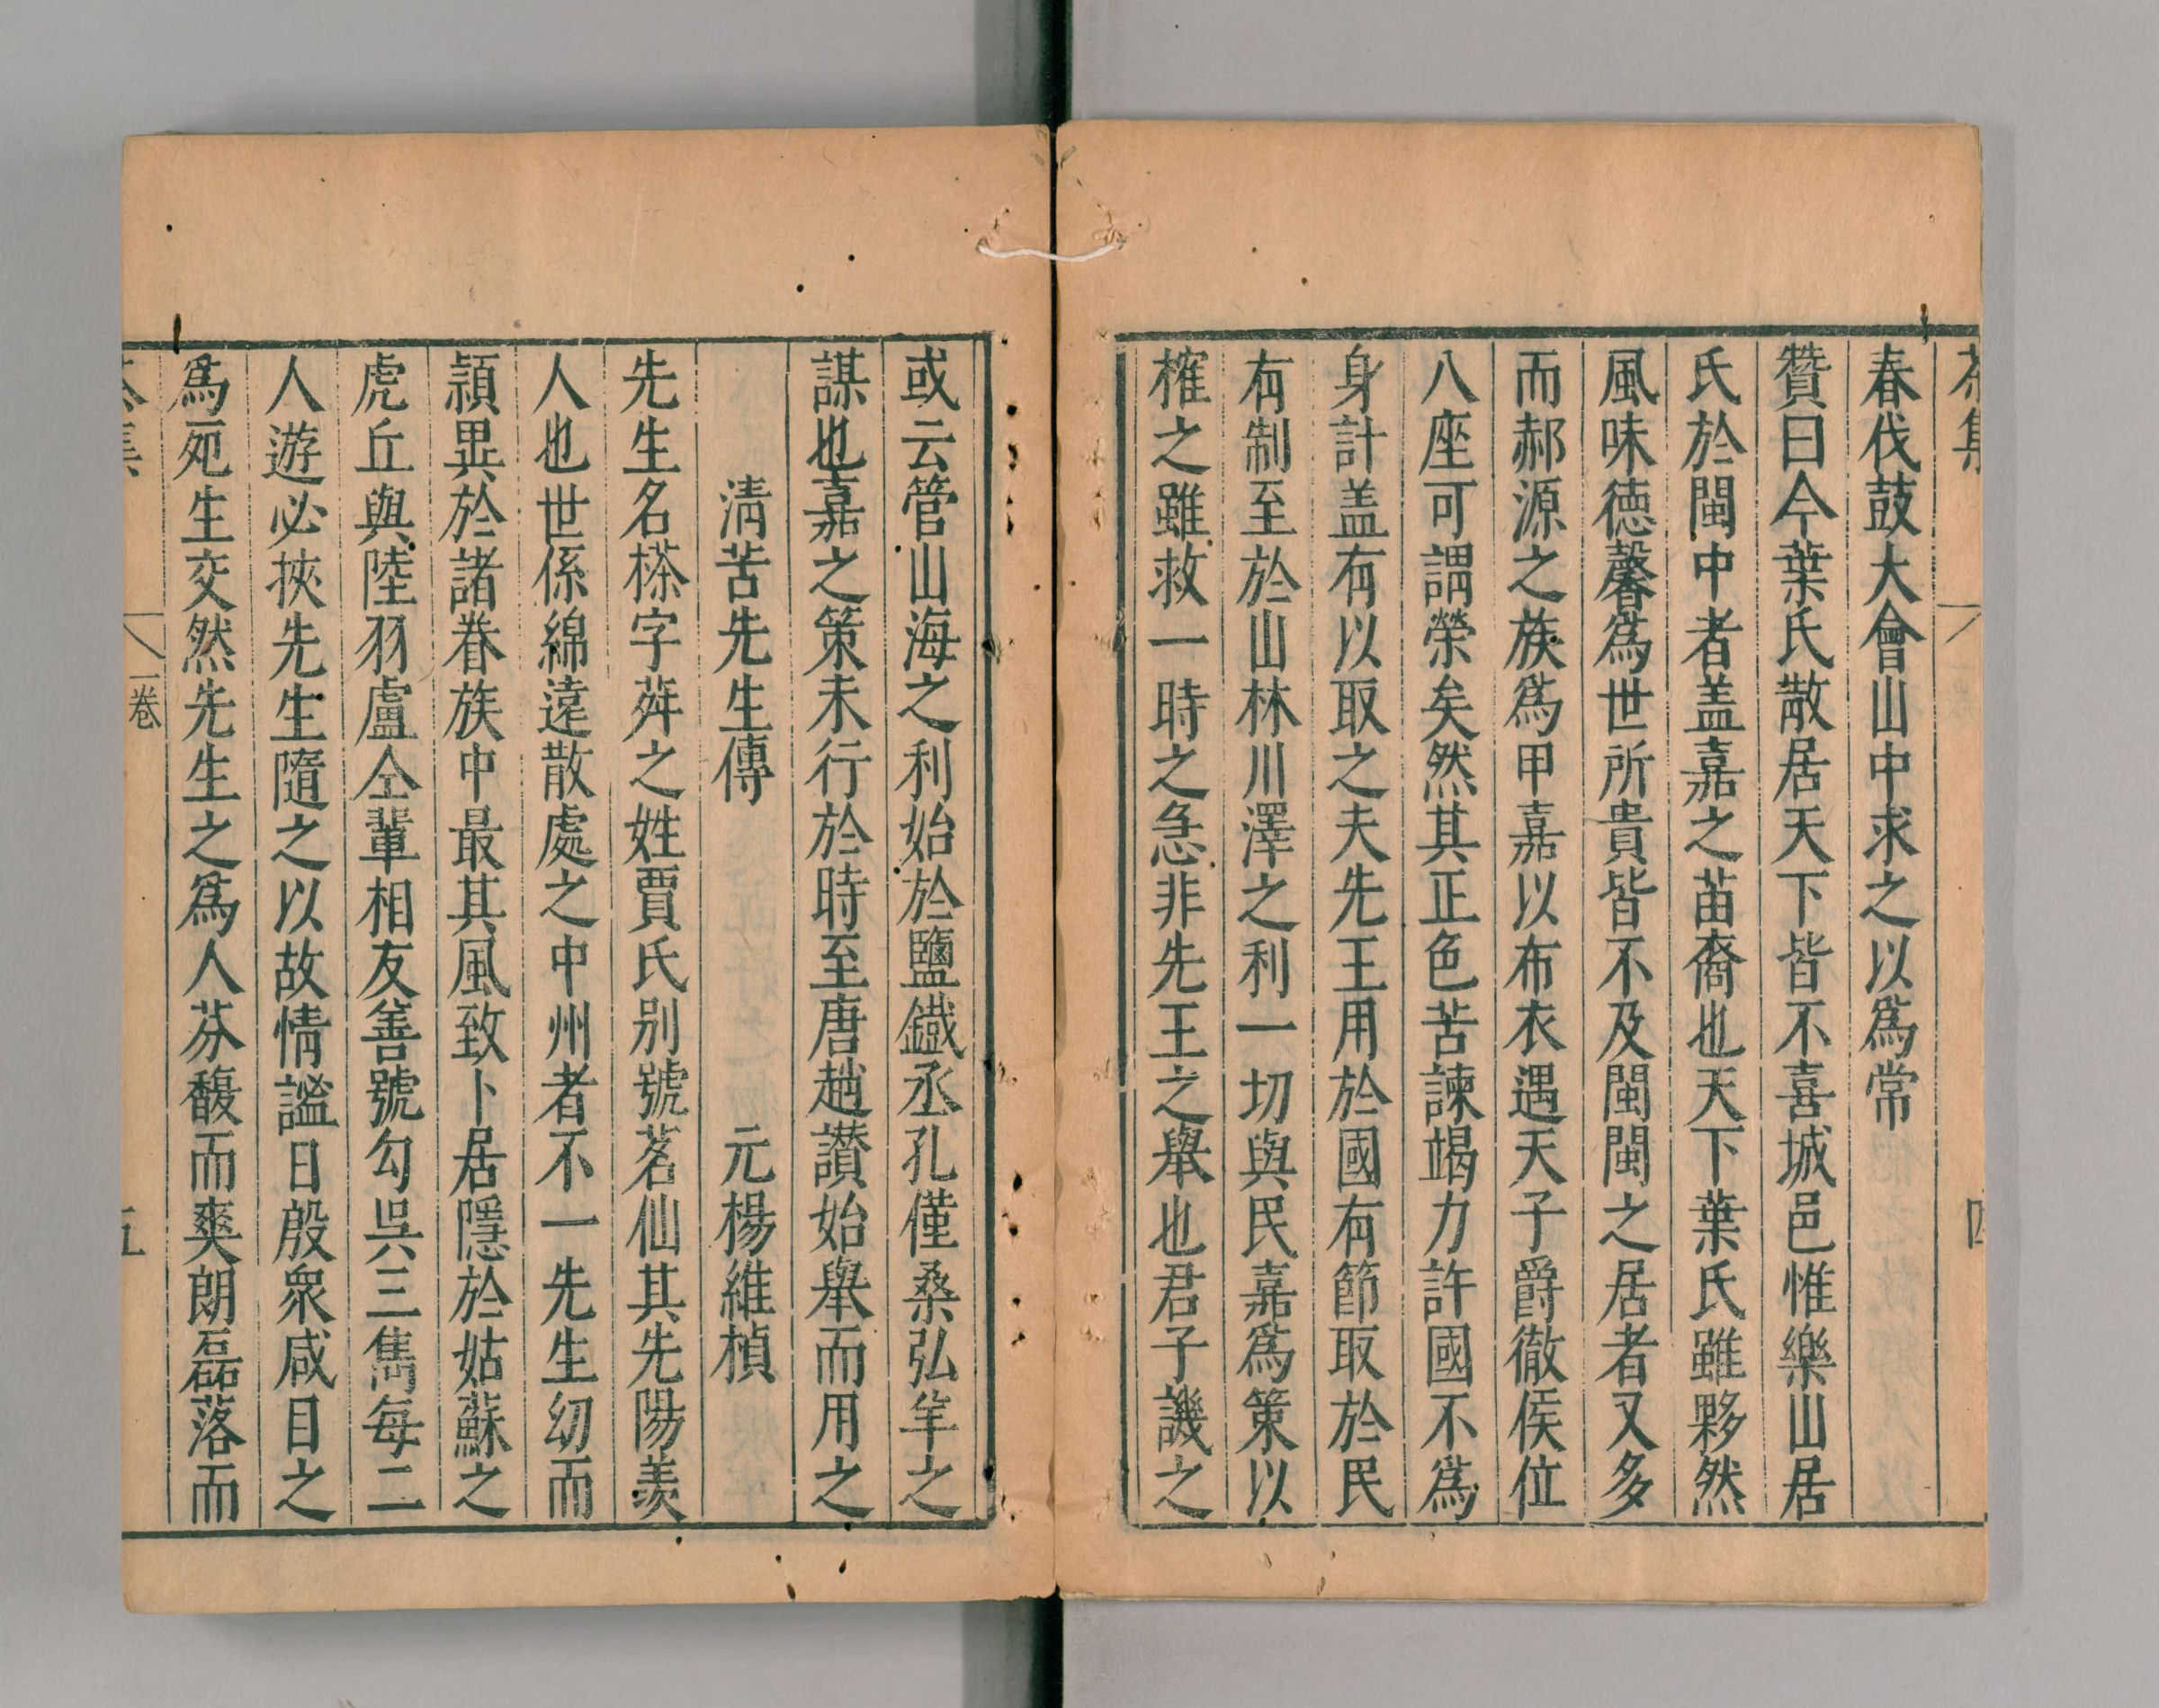 茶集
四
春伐鼓大會山中求之以為常
贊曰今葉氏散居天下皆不喜城邑惟樂山居
氏於閩中者盖嘉之苗裔也天下葉氏雖夥然
風味德馨為世所貴皆不及閩閩之居者又多
而郝源之族為甲嘉以布衣遇天子爵徹侯位
八座可謂榮矣然其正色苦諫竭力許國不為
身計盖有以取之夫先王用於國有節取於民
有制至於山林川澤之利一切與民嘉為策以
榷之雖救一時之急非先王之舉也君子譏之
或云管山海之利始於鹽鐵丞孔僅桑弘羊之
謀也嘉之策未行於時至唐趙讚始舉而用之
清苦先生傳 元楊維楨
先生名樣字荈之姓賈氏别號茗仙其先陽羨
人也世係綿遠散處之中州者不一先生幼而
穎異於諸眷族中最其風致卜居隱於姑蘇之
虎丘與陸羽盧仝輩相友善號勾吳三雋每二
人遊必挾先生隨之以故情謐日殷衆咸目之
為死生交然先生之為人芬馥而爽朗磊落而
茶集
一卷
五